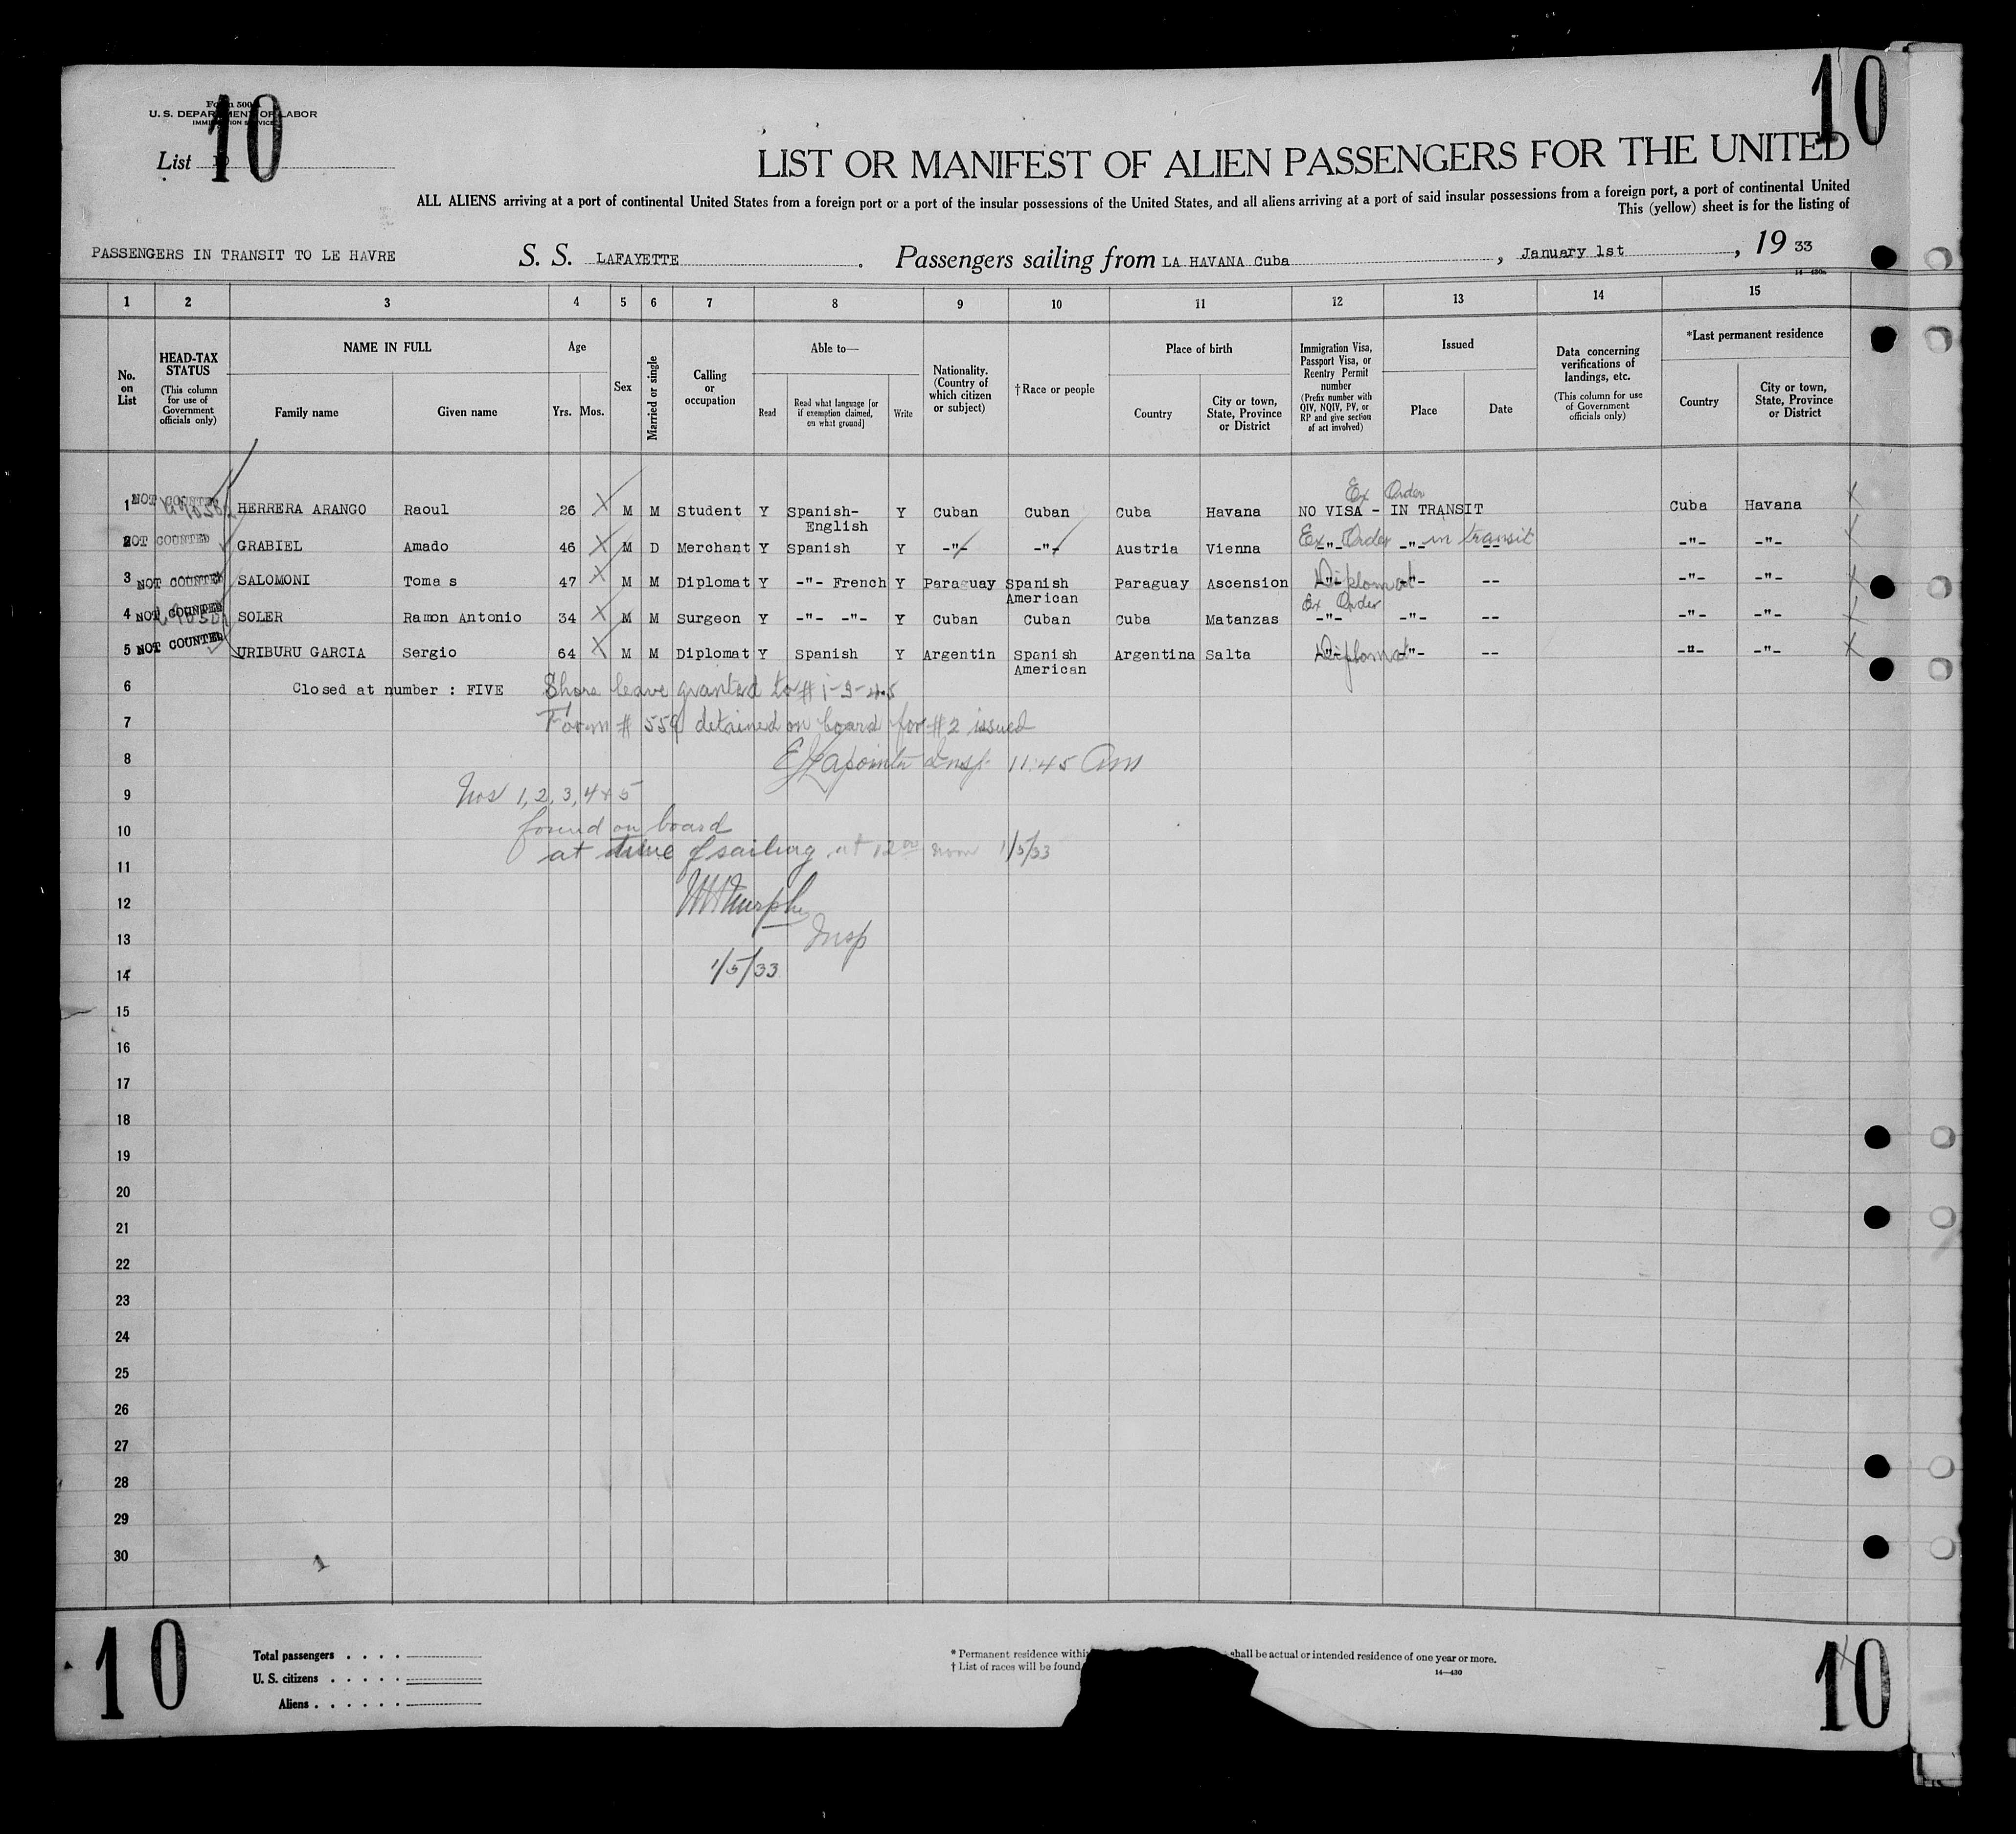 10
10
Form 500
U. S. DEPARTMENT OF LABOR
IMMIGRATION SERVICE
List 10
LIST OR MANIFEST OF ALIEN PASSENGERS FOR THE UNITED
ALL ALIENS arriving at a port of continental United States from a foreign port or a port of the insular possessions of the United States, and all aliens arriving at a port of said insular possessions from a foreign port, a port of continental United
This (yellow) sheet is for the listing of
PASSENGERS IN TRANSIT TO LE HAVRE S. S. LAFAYETTE . Passengers sailing from LA HAVANA Cuba , January 1st , 19 33
14—430a
1 2 3 4 5 6 7 8 9 10 11 12 13 14 15
No. on List
HEAD-TAX STATUS (This column for use of Government officials only)
NAME IN FULL Family name Given name
Age Yrs. Mos.
Sex
Married or single
Calling or occupation
Able to— Read Read what language [or if exemption claimed, on what ground] Write
Nationality. (Country of which citizen or subject)
† Race or people
Place of birth Country City or town, State, Province or District
Immigration Visa, Passport Visa, or Reentry Permit number (Prefix number with QIV, NQIV, PV, or RP and give section of act involved)
Issued Place Date
Data concerning verifications of landings, etc. (This column for use of Government officials only)
*Last permanent residence Country City or town, State, Province or District
Ex Order
1 NOT COUNTED HERRERA ARANGO Raoul 26 X M M Student Y Spanish- Y Cuban Cuban Cuba Havana NO VISA - IN TRANSIT Cuba Havana X
English
2 NOT COUNTED GRABIEL Amado 46 X M D Merchant Y Spanish Y -"- -"- Austria Vienna -"- Ex Order -"- in transit -- -"- -"- X
3 NOT COUNTED SALOMONI Tomas 47 X M M Diplomat Y -"- French Y Paraguay Spanish Paraguay Ascension -"- Diplomat -"- -- -"- -"- X
American
Ex Order
4 NOT COUNTED SOLER Ramon Antonio 34 X M M Surgeon Y -"- -"- Y Cuban Cuban Cuba Matanzas -"- -"- -- -"- -"- X
5 NOT COUNTED URIBURU GARCIA Sergio 64 X M M Diplomat Y Spanish Y Argentin Spanish Argentina Salta -"- Diplomat -"- -- -"- -"- X
American
6 Closed at number : FIVE Shore leave granted to # 1-3-4-5
7 Form # 559 detained on board for #2 issued
8 E Lapointe Insp. 11:45 Am
9 Nos 1, 2, 3, 4 & 5
10 found on board
at time of sailing at 12 00 noon 1/5/33
11
12 Murphy
13 Insp
14 1/5/33
15
16
17
18
19
20
21
22
23
24
25
26
27
28
29
30
10
Total passengers . . . .
U. S. citizens . . . . .
Aliens . . . . . .
* Permanent residence within shall be actual or intended residence of one year or more.
† List of races will be found
14—430
10